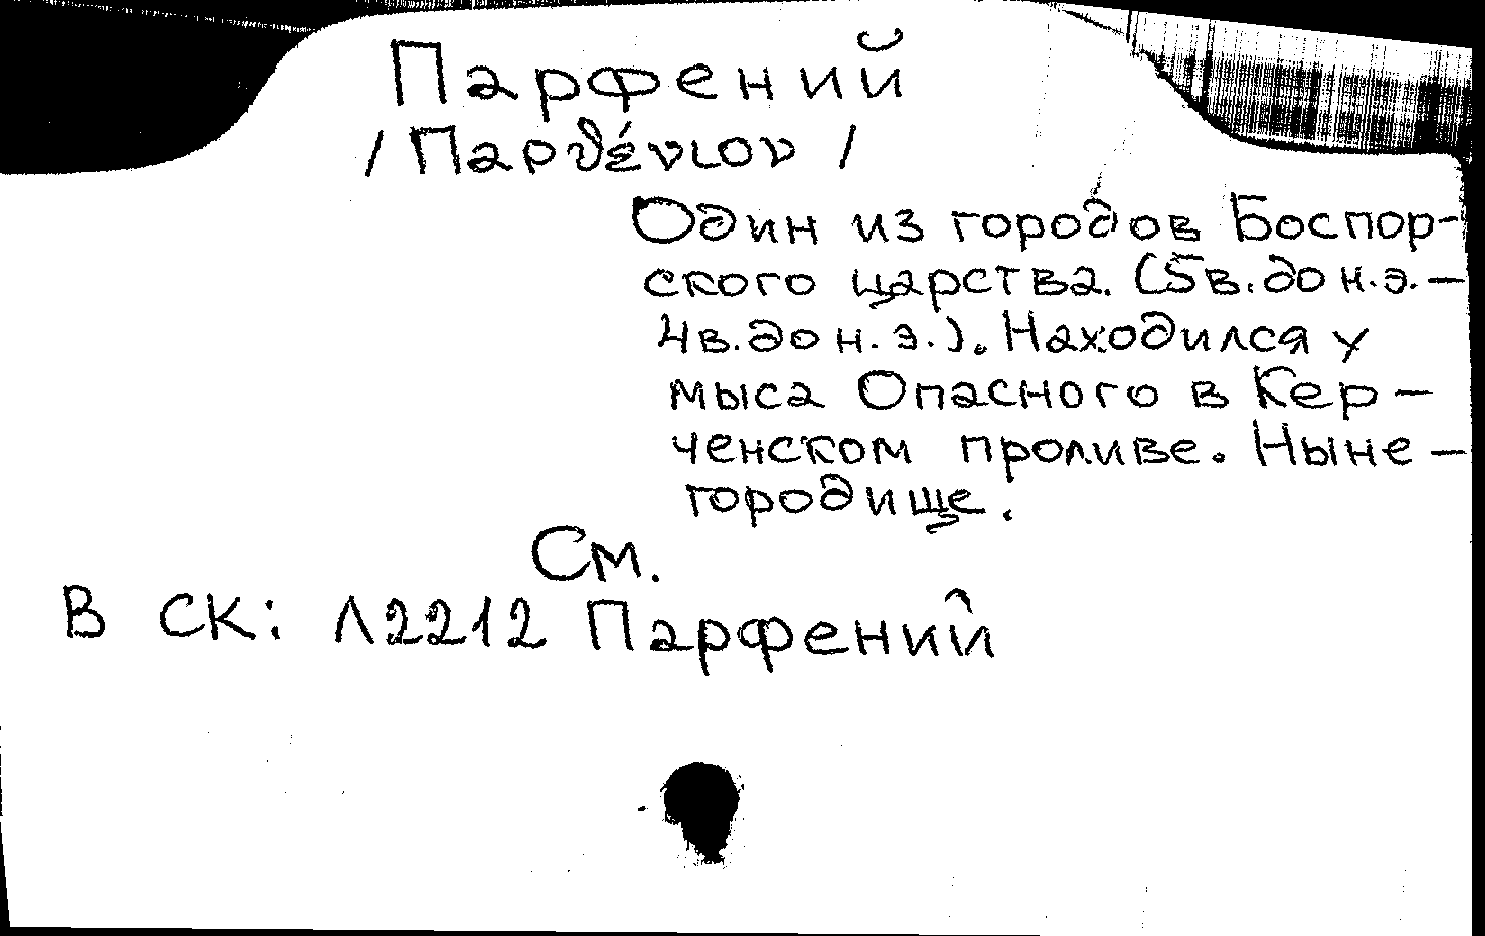 Парфений
/Παρθένιον/
Один из городов Боспор-
ского царства. (5в. до н.э. –
4в. до н.э.). Находился у
мыса Опасного в Кер-
ченском проливе. Ныне –
городище.
См.
В СК: Л2212 Парфений